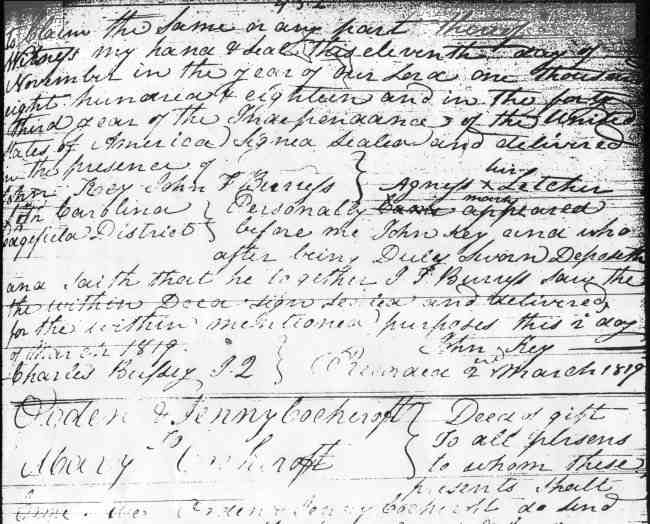 to Claim the Same or any part thereof
Witness my hand & Seal this eleventh day of
November in the year of our Lord one thousand
eight hundred & eighteen and in the forty
third year of the Independance of the United
States of America Signed Sealed and delivered
in the presence of
John Key John F Burress } Agness her x mark Letcher
South Carolina } Personally appeared
Edgefield District } before me John Key and who
after being Duly Sworn Deposeth
and saith that he together J F Burress saw the
the within Deed sign sealed and delivered
for the within mentioned purposes this 2 day
of March 1819. John Key
Charles Bussey J.Q } Recorded 2nd March 1819
Ogden & Jenny Cockcroft } Deed of gift
To } To all persons
Mary Cockcroft } to whom these
presents shall
Come We Ogden & Jenny Cockcroft do send